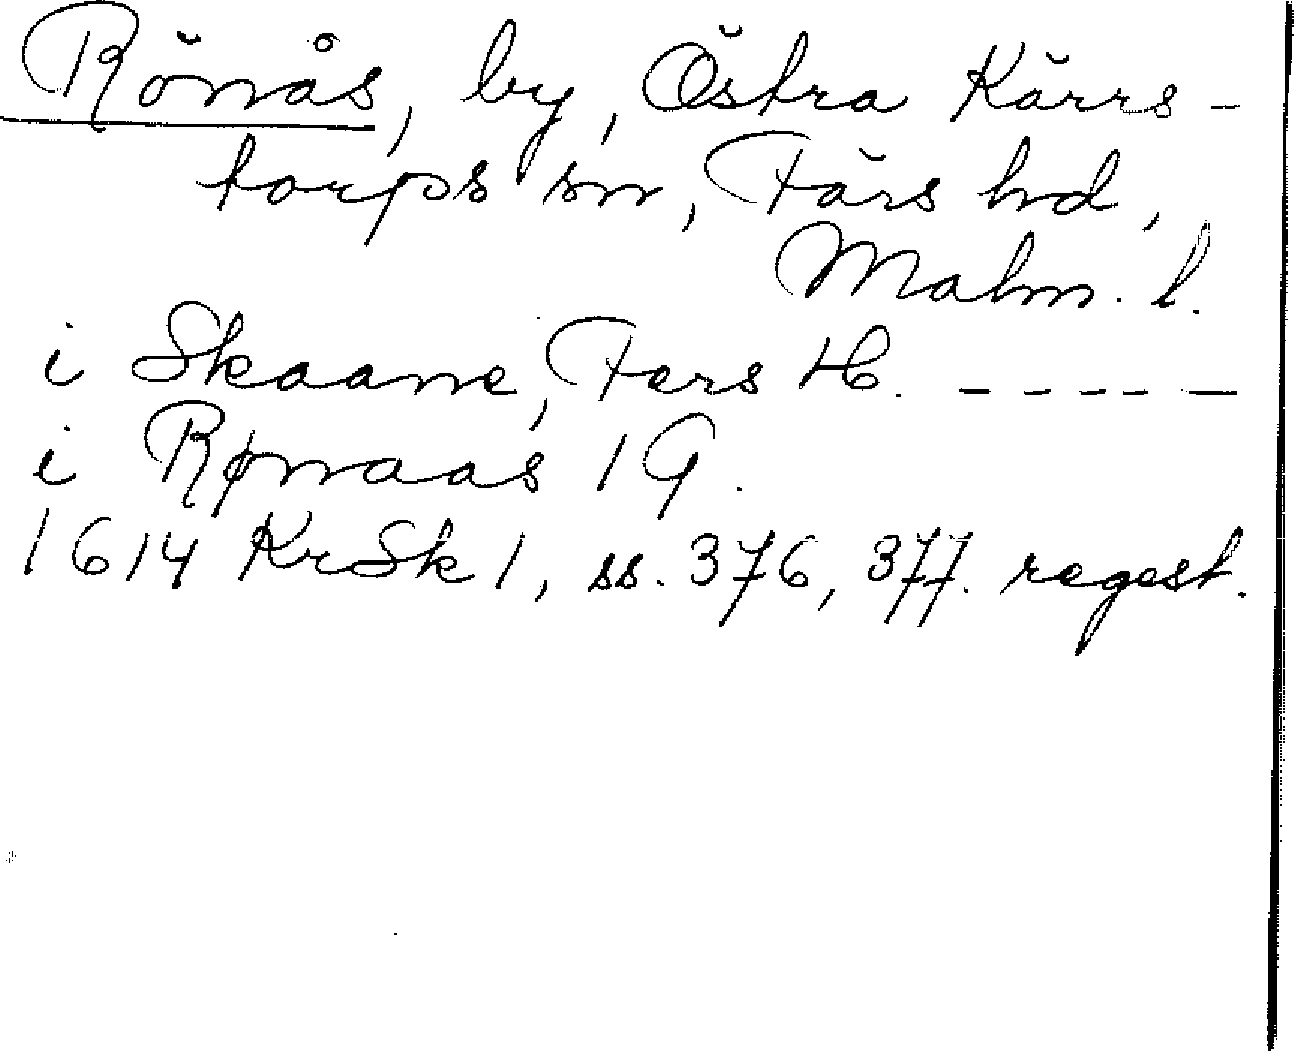 Rönås, by, Östra Kärrs-
torps sn, Färs hd,
Malm. l.
i Skaane, Fers H. - - - - -
i Rønaas 1 G.
1614 KrSk 1, ss. 376, 377. regest.